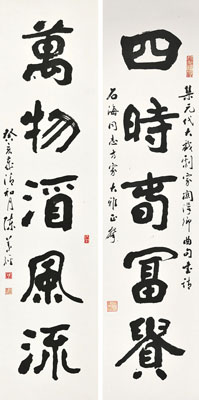 集元代大戲劇家關漢卿曲句書請
四時春冨貴
石海同志方家大雅正
萬物酒風流
癸亥清和月陳